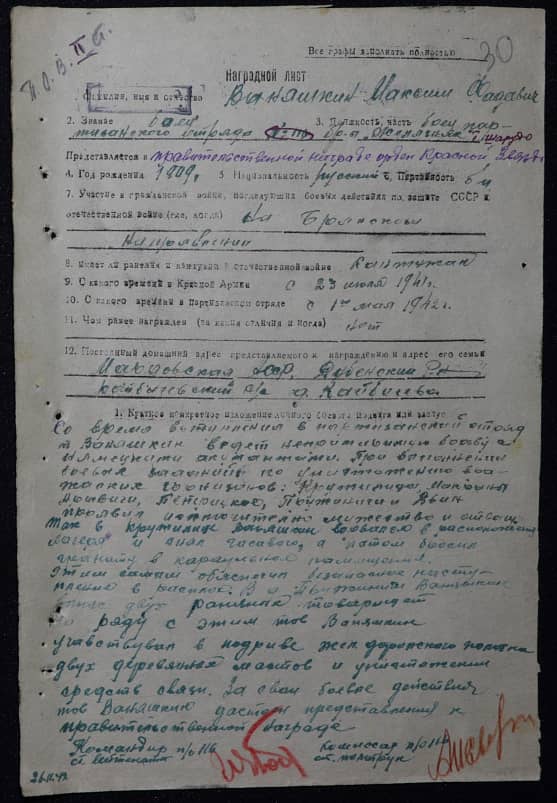 Все графы заполнять полностью
30
П.О.В. II ст.
Наградной лист
1. Фамилия, имя и отчествоВаняшкин Максим
2. Звание боец 3. Должность, часть боец пар
тизанского отряда бр-а Железняка
Представляется к правительственной награде орден Красной Звезды
4. Год рождения 1909г. 5 Национальность русский 6. Партийность б/п
7. Участие в гражданской войне, последующих боевых действиях по защите СССР и
отечественной войне (где, когда) на Брянском
направлении
8. Имеет ли ранения и контузии в отечественной войне контужен
9. С какого времени в Красной Армии с 23 июля 1941г.
10. С какого времени в партизанском отряде с 1го мая 1942г.
11. Чем ранее награжден (за какие отличия и когда) нет
12. Постоянный домашний адрес представляемого к награждению и адрес его семьи
АССР, Дубенский р-н
с/с д.
1. Краткое конкретное изложение личного боевого подвига или заслуг
Со времени вступления в партизанский отряд
т Ваняшкин ведет непримиримую борьбу с
немецкими оккупантами. При выполнении
боевых заданий по уничтожению вра-
жеских гарнизонов:
проявил исключительно мужество и отвагу
Так в Ваняшкин ворвался в расположение
лагеря и снял часового, а потом бросил
гранату в караульное помещение
Этим самым обеспечил безопасное насту-
пление Ваняшкин
вынес двух раненых товарищей
На ряду с этим тов Ваняшкин
участвовал в подрыве жел дорожного полотна
двух деревянных мостов и уничтожении
средств связи. За свои боевые действия
тов Ваняшкин достоин представления к
правительственной награде
Командир п/о 116 Комиссар п/о 116
ст. лейтенант ст. политрук